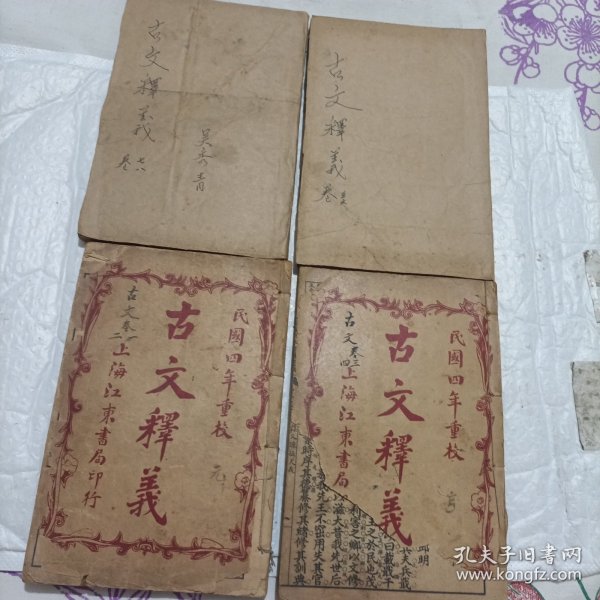 古文釋義
卷七八
吴秀青
古文釋義
卷五六
民國四年重校
古文釋義
上海江東書局印行
古文卷一二
元
民國四年重校
古文釋義
上海江東書局
古文卷三四
亨
邱明
孔夫子旧书网
www.kongfz.com